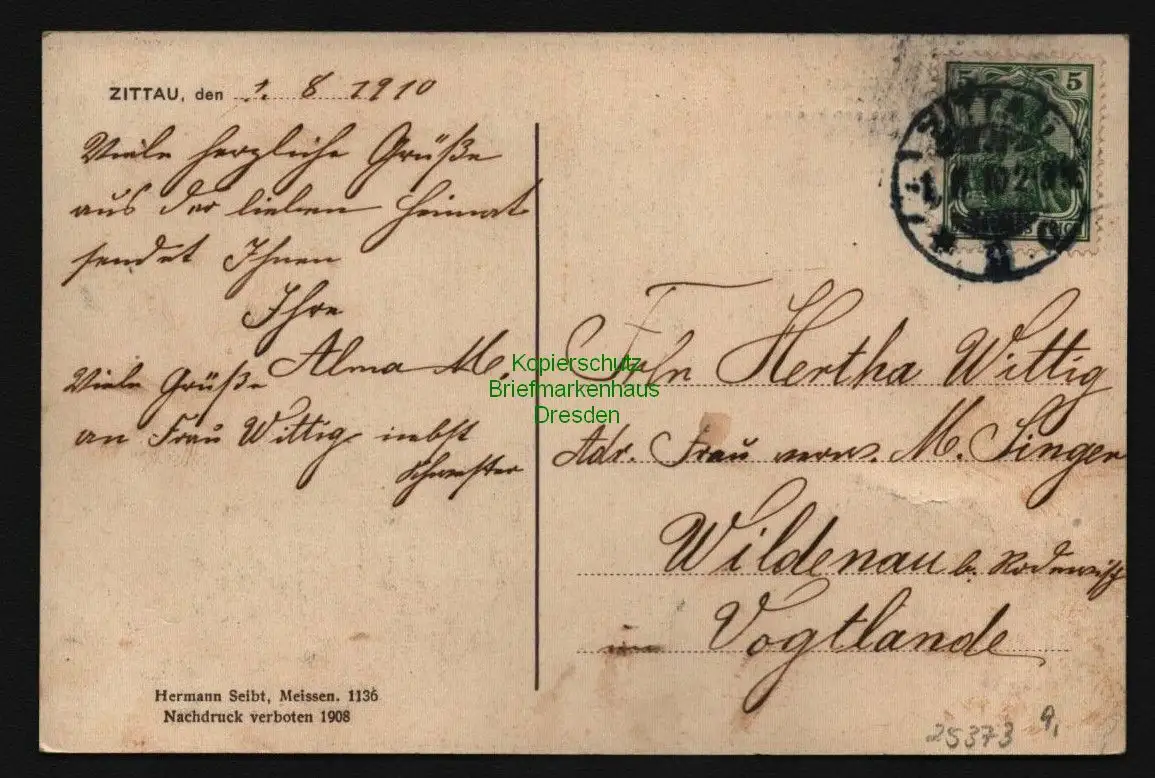 ZITTAU, den 1. 8 1910
Viele herzliche Grüße
aus der lieben Heimat
sendet Ihnen
Ihre
Alma M.
Viele Grüße
an Frau Wittig nebst
Schwester
Hermann Seibt, Meissen. 1136
Nachdruck verboten 1908
5 5
ZITTAU
Frln Hertha Wittig
Adr. Frau verw. M. Singer
Wildenau b. Rodewisch
im Vogtlande
25373 9,
Kopierschutz
Briefmarkenhaus
Dresden